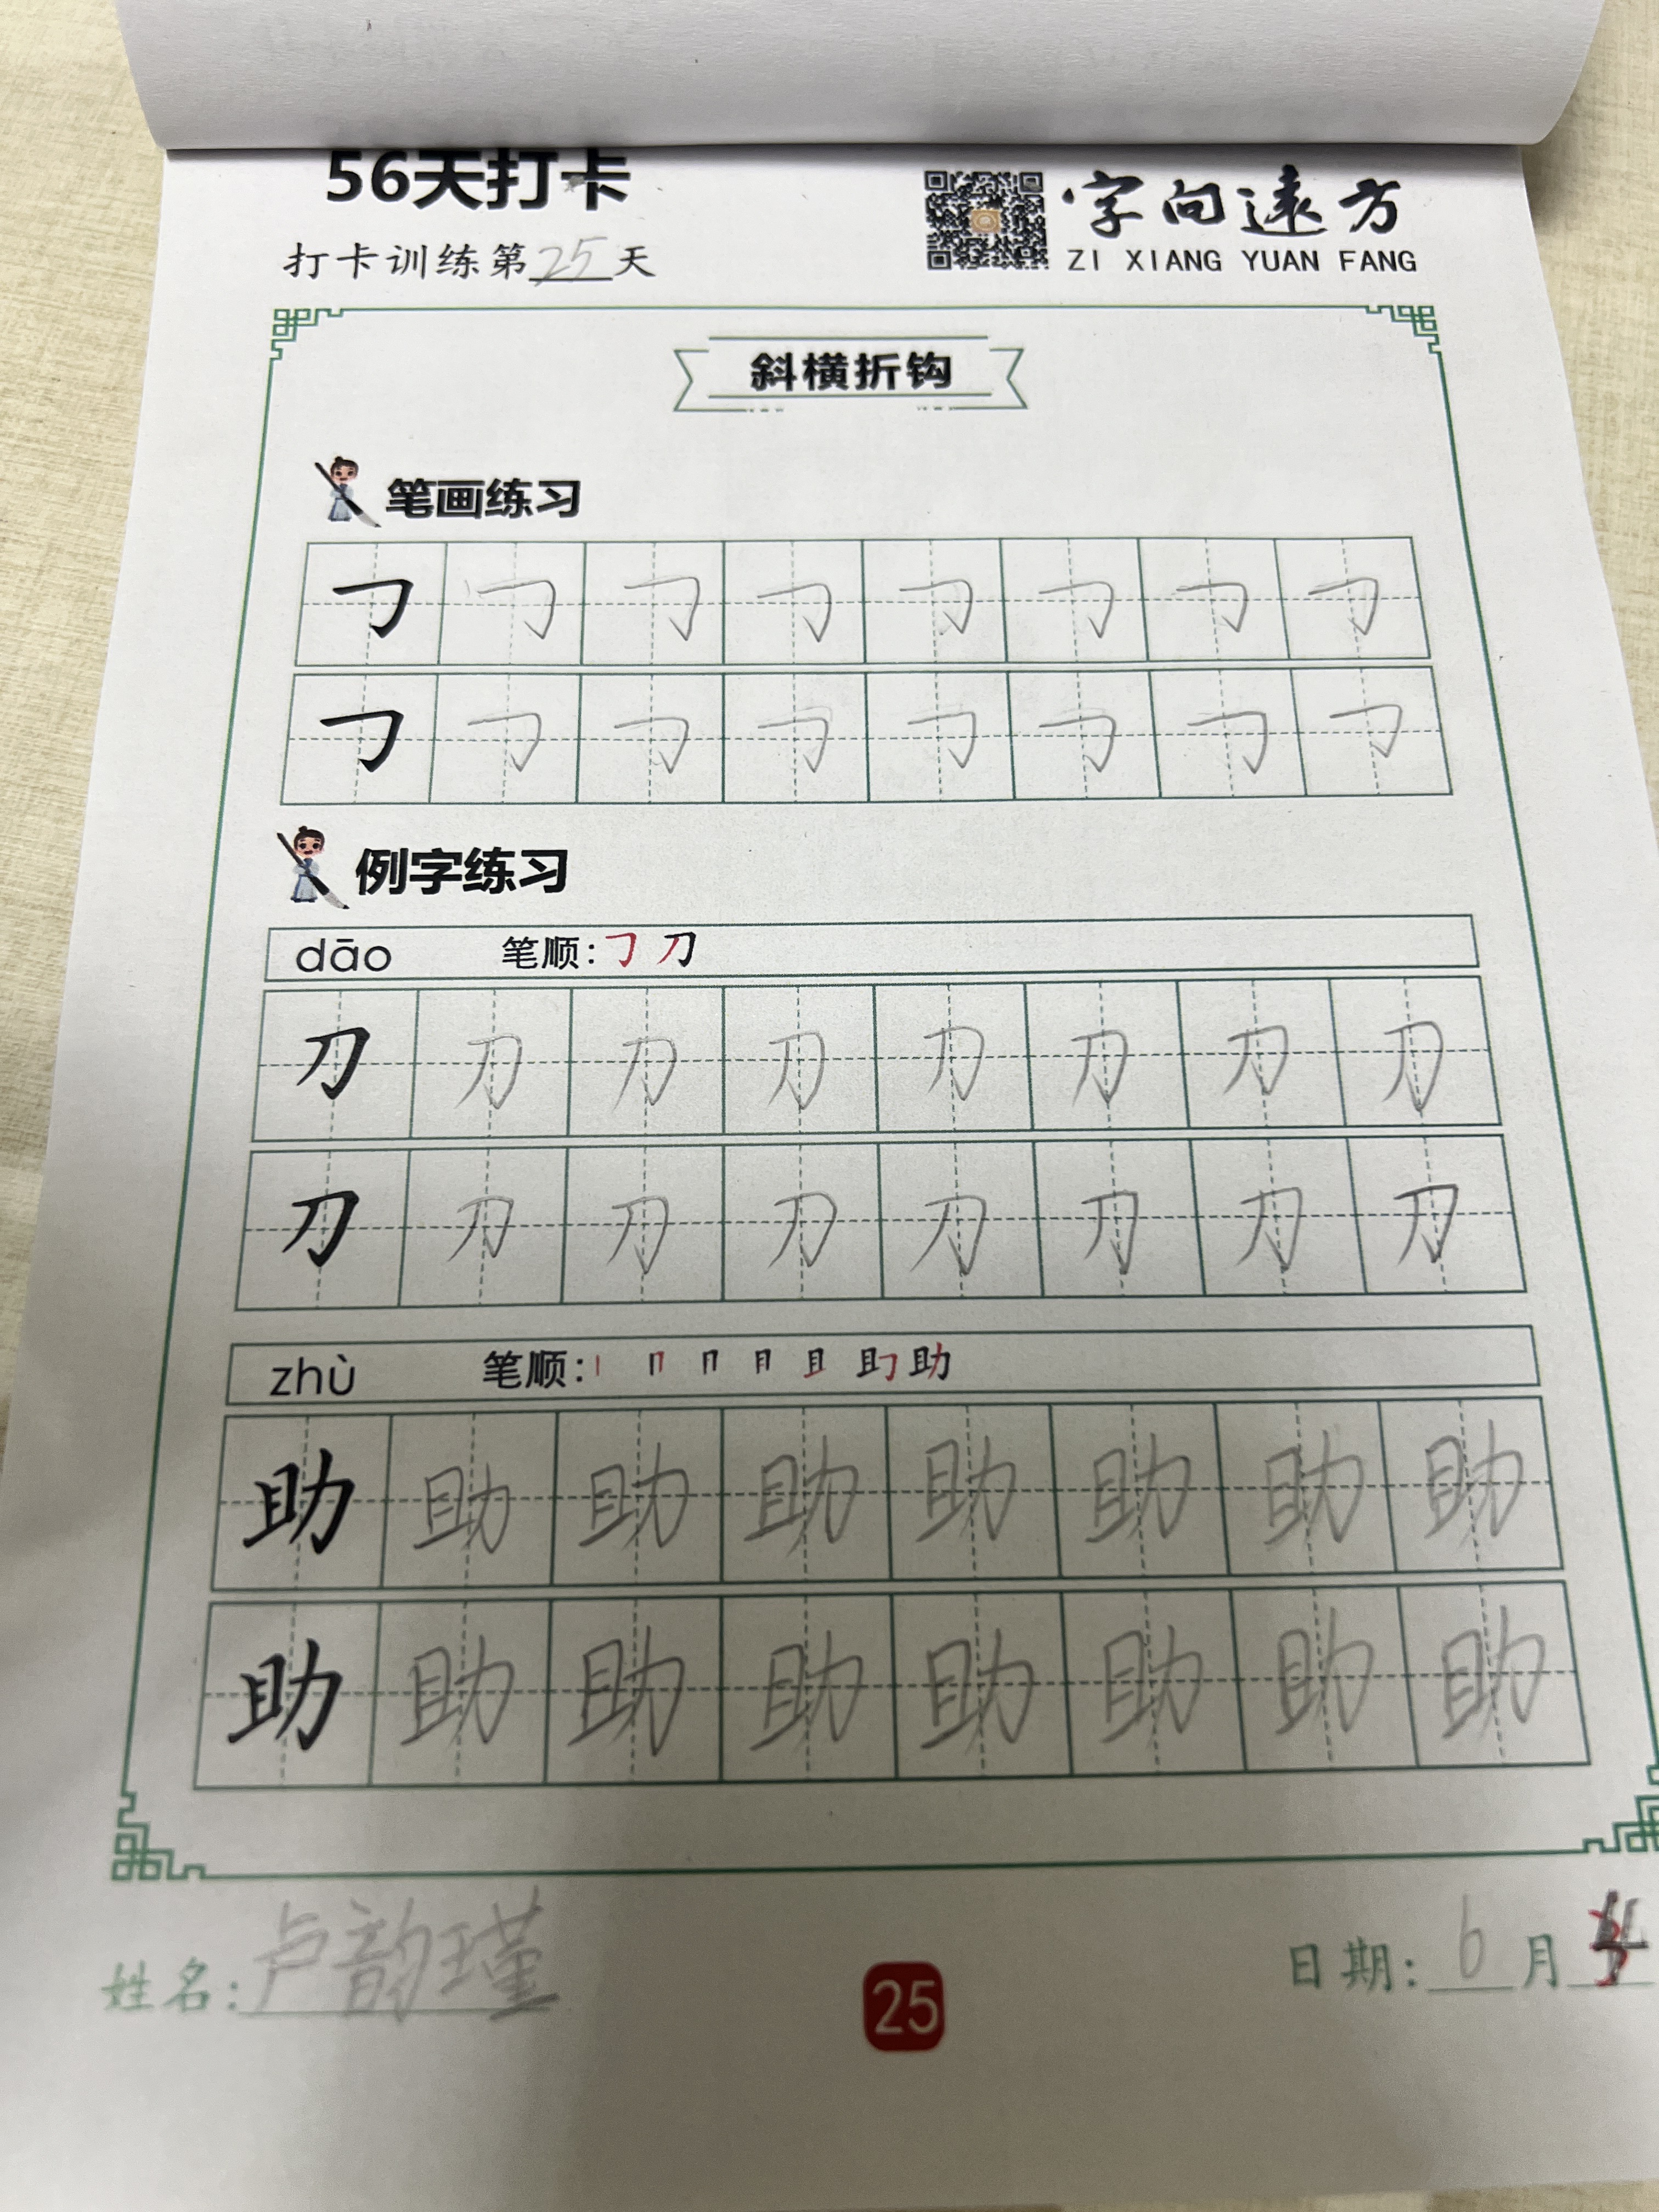 56天打卡
打卡训练第25天
字向远方
ZI XIANG YUAN FANG
斜横折钩
笔画练习
𠃌 𠃌 𠃌 𠃌 𠃌 𠃌 𠃌 𠃌
𠃌 𠃌 𠃌 𠃌 𠃌 𠃌 𠃌 𠃌
例字练习
dāo 笔顺:𠃌 刀
刀 刀 刀 刀 刀 刀 刀 刀
刀 刀 刀 刀 刀 刀 刀 刀
zhù 笔顺: 助
助 助 助 助 助 助 助 助
助 助 助 助 助 助 助 助
姓名:卢韵瑾
25
日期:6月